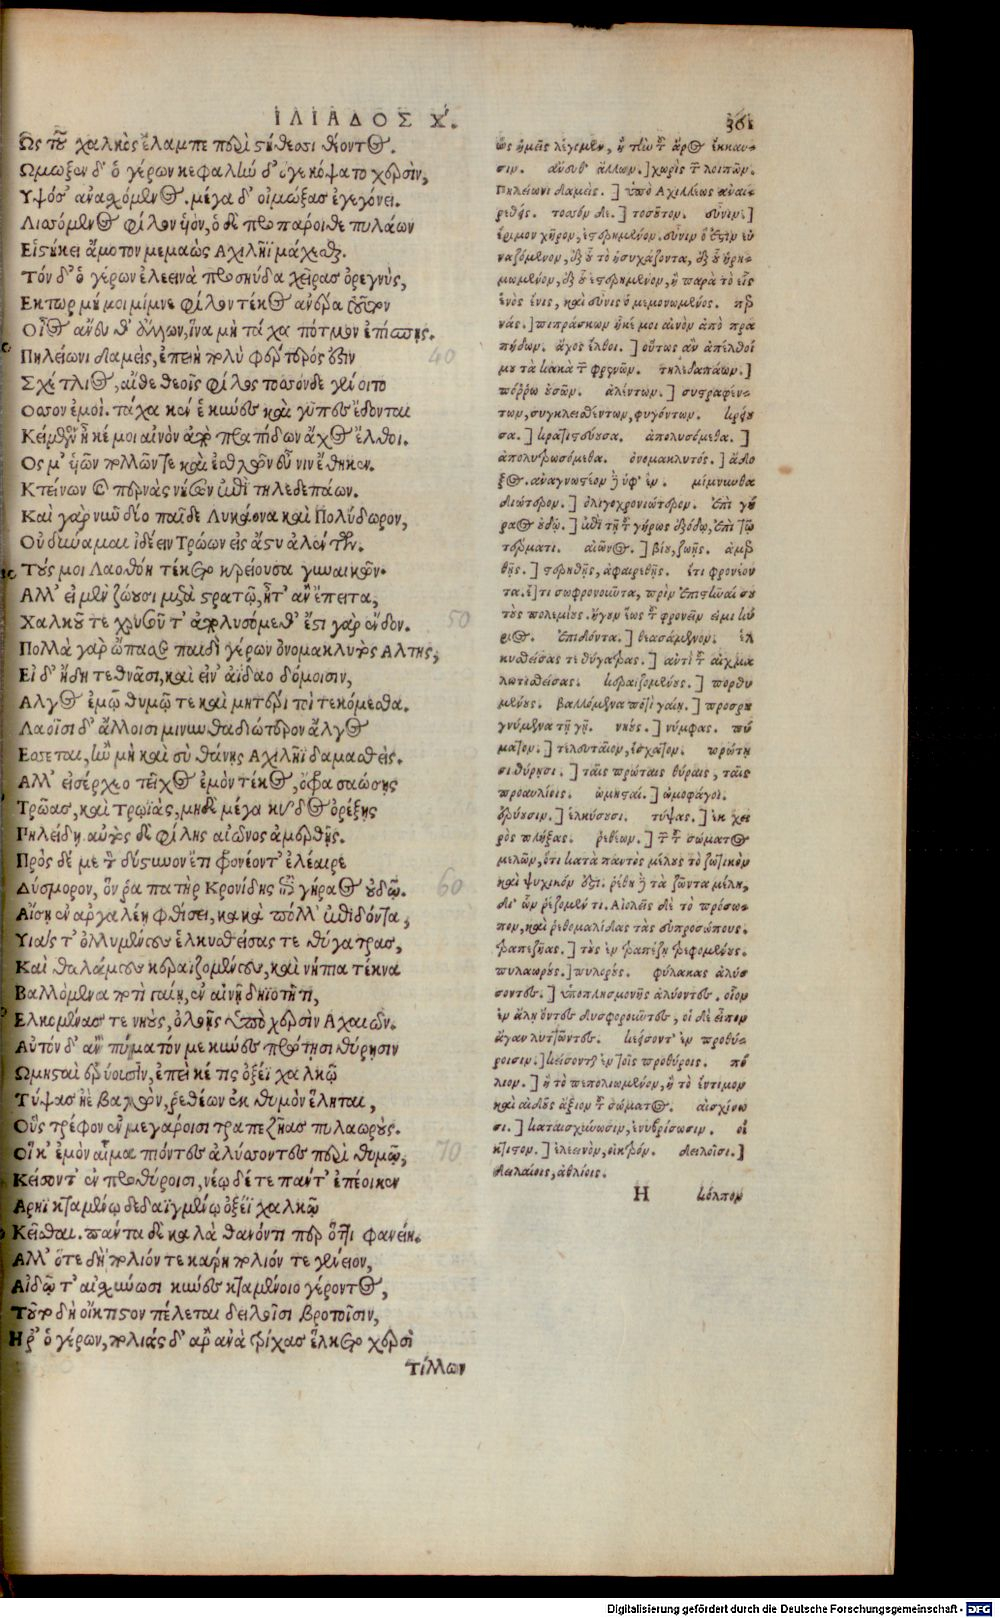 ΙΛΙΑΔΟΣ Χ. 361
Ως τοῦ χαλκὸς ἔλαμπε περὶ στήθεσσι θέοντος.
Ωμωξεν δ' ὁ γέρων κεφαλὴν δ' ὅγε κόψατο χερσὶν,
Υψόσ' ἀναχόμενος. μέγα δ' οἰμώξας ἐγεγόνει.
Λισσόμενος φίλον ὑὸν, ὁ δὲ προπάροιθε πυλάων
Εἱστήκει ἄμοτον μεμαὼς Αχιλῆϊ μάχεσθαι.
Τὸν δ' ὁ γέρων ἐλεεινὰ προσηύδα χεῖρας ὀρεγνὺς,
Εκτωρ μή μοι μίμνε φίλον τέκος ἀνέρα τοῦτον
Οἶος ἄνευθ' ἄλλων, ἵνα μὴ τάχα πότμον ἐπίσπῃς.
Πηλείωνι δαμεὶς, ἐπειὴ πολὺ φέρτερός ἐστιν 40
Σχέτλιος, αἴθε θεοῖς φίλος τοσόνδε γένοιτο
Οσσον ἐμοί. τάχα κεν ἑ κύνες καὶ γῦπες ἔδονται
Κείμενον ἦ κέ μοι αἰνὸν ἀπὸ πραπίδων ἄχος ἔλθοι.
Ος μ' ὑῶν πολλῶν τε καὶ ἐσθλῶν εὖνιν ἔθηκεν.
Κτείνων καὶ περνὰς νήσων ἐπὶ τηλεδαπάων.
Καὶ γὰρ νῦν δύο παῖδε Λυκάονα καὶ Πολύδωρον,
Οὐ δύναμαι ἰδέειν Τρώων εἰς ἄστυ ἀλέντων.
Τούς μοι Λαοθόη τέκετο κρείουσα γυναικῶν.
Αλλ' εἰ μὲν ζώουσι μετὰ στρατῷ, ἦτ' ἂν ἔπειτα,
Χαλκοῦ τε χρυσοῦ τ' ἀπολυσόμεθ' ἔστι γὰρ ἔνδον. 50
Πολλὰ γὰρ ὤπασε παιδὶ γέρων ὀνομακλυτὸς Αλτης,
Εἰ δ' ἤδη τεθνᾶσι, καὶ εἰν ἀΐδαο δόμοισιν,
Αλγος ἐμῷ θυμῷ τε καὶ μητέρι τοὶ τεκόμεσθα.
Λαοῖσι δ' ἄλλοισι μινυνθαδιώτερον ἄλγος
Εσσεται, ἢν μὴ καὶ σὺ θάνῃς Αχιλῆϊ δαμασθείς.
Αλλ' εἰσέρχεο τεῖχος ἐμὸν τέκος, ὄφρα σαώσῃς
Τρῶας, καὶ Τρῳϊὰς, μηδὲ μέγα κῦδος ὀρέξῃς
Πηλείδῃ. αὐτὸς δὲ φίλης αἰῶνος ἀμερθῇς.
Πρὸς δέ με τὸ δύστηνον ἔτι φρονέοντ' ἐλέαιρε
Δύσμορον, ὅν ῥα πατὴρ Κρονίδης ἐπὶ γήραος οὐδῷ. 60
Αἴσῃ ἐν ἀργαλέῃ φθίσει, κακὰ πόλλ' ἐπιδόντα,
Υἱάς τ' ὀλλυμένους ἑλκυσθείσας τε θύγατρας,
Καὶ θαλάμους κεραϊζομένους, καὶ νήπια τέκνα
Βαλλόμενα ποτὶ γαίῃ, ἐν αἰνῇ δηϊοτῆτι,
Ελκομένας τε νυοὺς, ὀλοῇς ὑπὸ χερσὶν Αχαιῶν.
Αὐτὸν δ' ἂν πύματόν με κύνες πρώτῃσι θύρῃσιν
Ωμησταὶ ἐρύουσιν, ἐπεί κέ τις ὀξέϊ χαλκῷ
Τύψας ἠὲ βαλὼν, ῥεθέων ἐκ θυμὸν ἕληται,
Οὓς τρέφον ἐν μεγάροισι τραπεζῆας πυλαωρούς.
Οἵ κ' ἐμὸν αἷμα πιόντες ἀλύσσοντες περὶ θυμῷ, 70
Κείσοντ' ἐν προθύροισι, νέῳ δέ τε πάντ' ἐπέοικεν
Αρηϊ κταμένῳ δεδαϊγμένῳ ὀξέϊ χαλκῷ
Κεῖσθαι. πάντα δὲ καλὰ θανόντι περ ὅττι φανείη.
Αλλ' ὅτε δὴ πολιόν τε κάρη πολιόν τε γένειον,
Αἰδῶ τ' αἰσχύνωσι κύνες κταμένοιο γέροντος,
Τοῦτο δὴ οἴκτιστον πέλεται δειλοῖσι βροτοῖσιν,
Η ῥ' ὁ γέρων, πολιὰς δ' ἄρ' ἀνὰ τρίχας ἕλκετο χερσὶ
τίλλων
ὡς ἡμεῖς λέγομεν, ἢ τὴν τοῦ ἄρος ἔκκαυ-
σιν. ἄνευθ' ἄλλων.] χωρὶς τῶν λοιπῶν.
Πηλείωνι δαμείς.] ὑπὸ Αχιλλέως ἀναι-
ρεθής. τοσόνδε.] τοσοῦτον. εὖνιν.]
πηδων. ἄχος ἔλθοι.] οὕτως ἂν ἀπέλθοι
μου τὰ κακὰ τῶν φρενῶν. τηλεδαπάων.]
πόῤῥω οὐσῶν. ἀλέντων.] συστραφέν-
των, συγκλεισθέντων, φυγόντων. κρείου-
σα.] κρατιστεύουσα. ἀπολυσόμεθα.]
ἀπολυτρωσόμεθα. ὀνομακλυτός.] ἔνδο
διώτερον.] ὀλιγοχρονιώτερον. ἐπὶ γή
ραος οὐδῷ.] ἐπὶ τῇ τοῦ γήρως ἐξόδῳ, ἐπὶ τῷ
τέρματι. αἰῶνος.] βίου, ζωῆς. ἀμερ
θῇς.] στερηθῇς, ἀφαιρεθῇς. ἔτι φρονέον
τα.] ἔτι σωφρονοῦντα, πρὶν ἐπιστῆναι σου
τοὺς πολεμίους. ἤγουν ἕως τοῦ φρονεῖν εἰμι κύ
ριος. ἐπιδόντα.] θεασάμενον. ἑλ
κυσθείσας τε θύγατρας.] ἀντὶ τοῦ αἰχμα
λωτισθείσας. κεραϊζομένους.] πορθου
μένους. βαλλόμενα ποτὶ γαίῃ.] προσρη
γνύμενα τῇ γῇ. νυούς.] νύμφας. πύ
ματον.] τελευταῖον, ἔσχατον. πρώτῃ
σι θύρῃσι.] ταῖς πρώταις θύραις, ταῖς
προαυλίοις. ὠμησταί.] ὠμοφάγοι.
ἐρύουσιν.] ἑλκύσουσι. τύψας.] ἐκ χει
ρὸς πλήξας. ῥεθέων.] τῶν τοῦ σώματος
μελῶν, ὅτι κατὰ παντὸς μέλους τὸ ζωτικὸν
καὶ ψυχικόν ἐστι. ῥέθη γὰρ τὰ ζῶντα μέλη,
δι' ὧν ῥέζομέν τι. Αἰολεῖς δὲ τὸ πρόσω-
πον, καὶ ῥεθομαλίδας τοὺς εὐπροσώπους.
τραπεζῆας.] τοὺς ἐν τραπέζῃ τρεφομένους.
πυλαωρούς.] πυλωρούς. φύλακας ἀλύσ
σοντες.] ὑποπλησμονῆς ἀλύοντες. οἷον
ἐν ἄλῃ ὄντες δυσφοροῦντες, οἱ δὲ εἶπον
ἄγαν λυττῶντες. κείσοντ' ἐν προθύ-
ροισιν.] κείσονται ἐν τοῖς προθύροις. πο
λιόν.] ἢ τὸ πεπολιωμένον, ἢ τὸ ἔντιμον
καὶ αἰδοῦς ἄξιον τοῦ σώματος. αἰσχύνω
σι.] καταισχύνωσιν, ἐνυβρίσωσιν. οἴ
κτιστον.] ἐλεεινὸν, οἰκτρόν. δειλοῖσι.]
δειλαίοις, ἀθλίοις.
H κόλπον
Digitalisierung gefördert durch die Deutsche Forschungsgemeinschaft - DFG